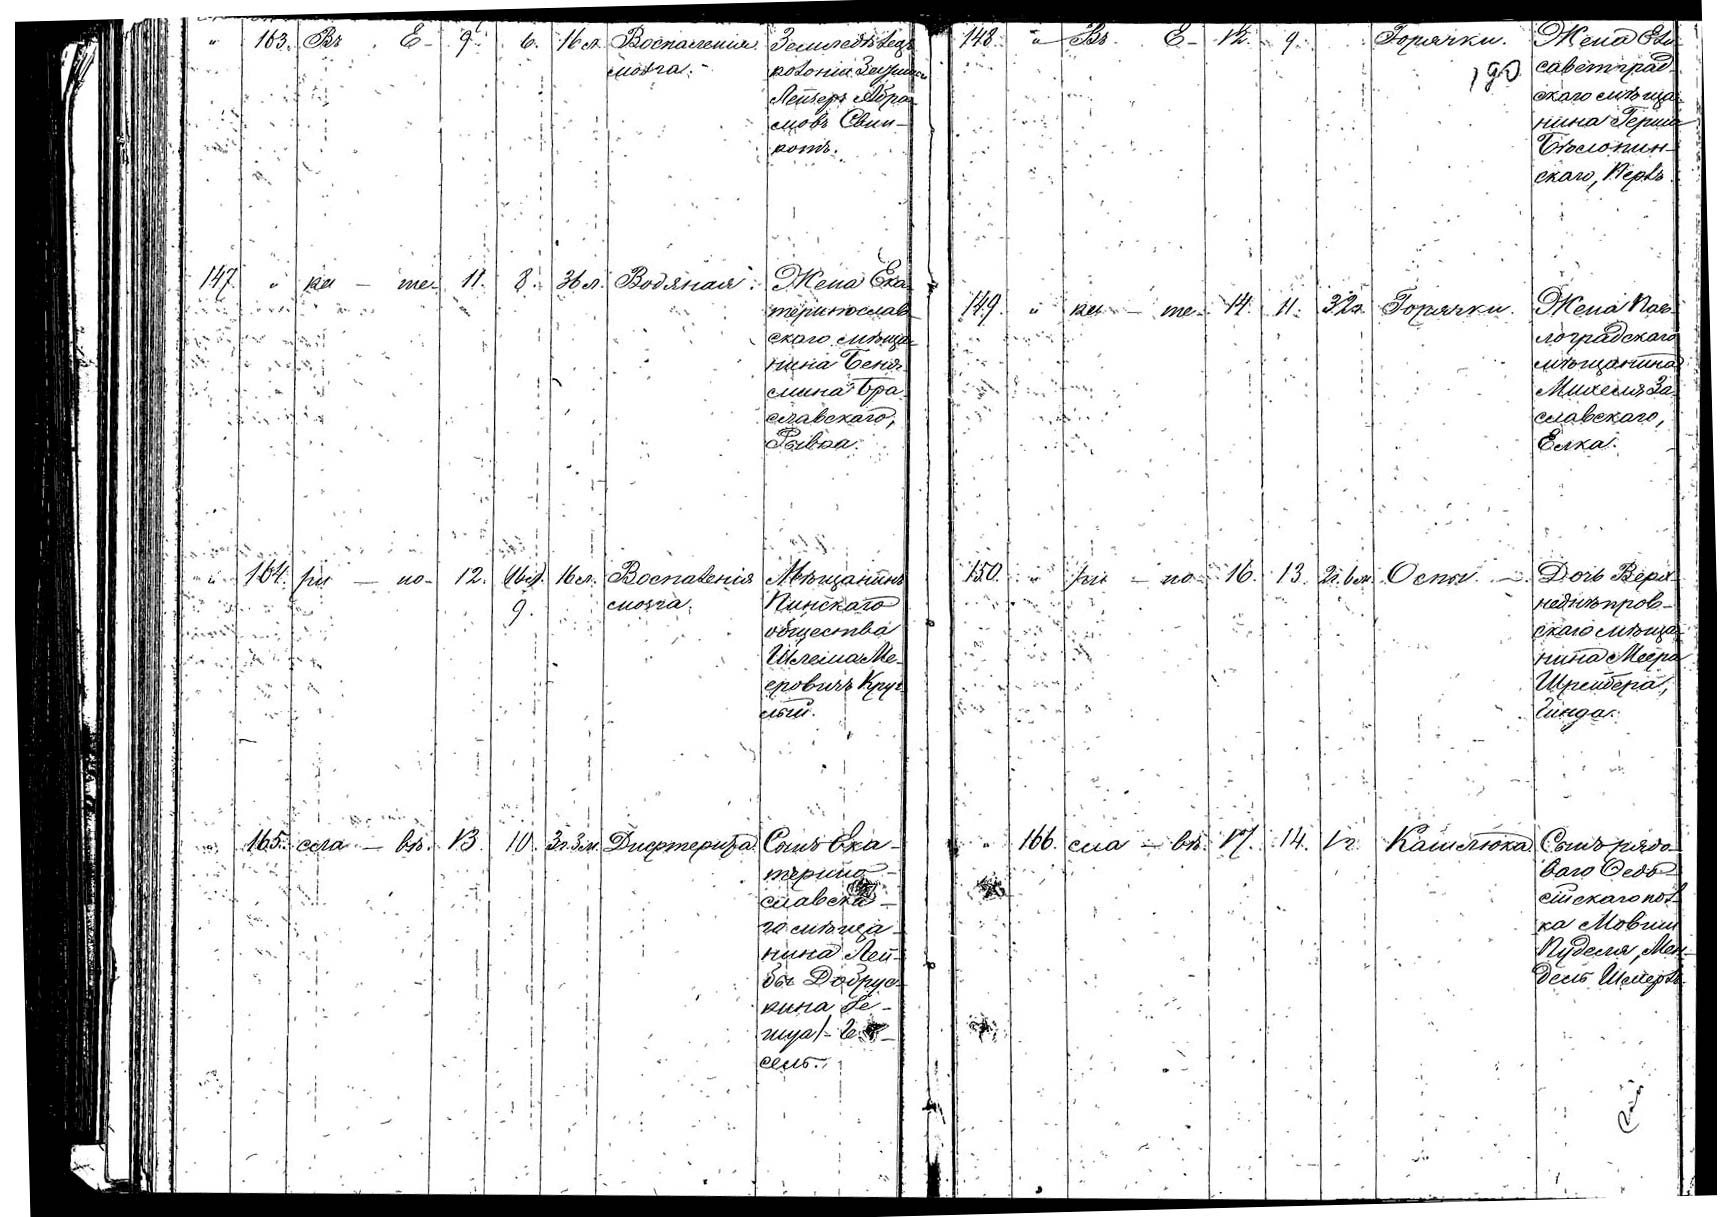 " 163. Въ Е- 9 6. 16 л. Воспаления Земледѣлецъ
мозга. колоніи
Лейзеръ Абра
мовъ Свин-
котъ.
147 " ка - те- 11. 8. 36 л. Водяная. Жена Ека
теринослав
скаго мѣща-
нина Беня
мина Бра
славскаго,
Рывка.
" 164. ри - но- 12. 9. 16 л. Воспаленія Мѣщанинъ
мозга. Пинскаго
общества
Шлема Ме-
еровичъ Круг
лый.
165. сла - вѣ. 13. 10. 3г. 3м. Дифтерита Сынъ Ека-
терино-
славска-
го мѣща-
нина Лей-
бы Добрус
кина Ге-
сель.
148. " Въ Е- 12. 9. Горячки. Жена Ели
190 саветград
скаго мѣща-
нина Герша
Бѣлопин-
скаго, Перль.
149. " ка - те- 14. 11. 32л. Горячки. Жена Пав-
лоградскаго
мѣщанина
Михеля За
славскаго,
Елка.
150. " ри - но- 16. 13. 2г. 6м. Оспы - Дочь Верх
неднѣпров-
скаго мѣща-
нина Меера
Шрейбера,
Гинда.
" 166. сла - вѣ. 17. 14. 1г. Кашлюка Сынъ рядо
ваго
скаго пол
ка Мовши
Пуделя, Мен-
дель Шмерль.